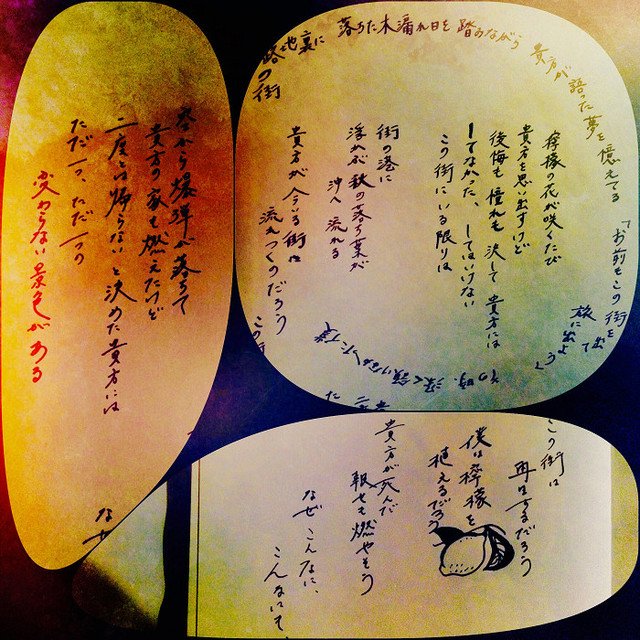 路地裏に 落ちた木漏れ日を 踏みながら 貴方が語った夢を憶えてる
「お前もこの街を出て
旅に出よう」
その時、深く頷けなかった僕
の街
檸檬の花が咲くたび
貴方を思い出すけど
後悔も憧れも決して貴方には
してなかった してはいけない
この街にいる限りは
街の港に
浮かぶ秋の落ち葉が
沖へ流れる
貴方が今いる街は
流れつくのだろう
この街
空から爆弾が落ちて
貴方の家も燃えたけど
二度とは帰らないと決めた貴方には
ただ一つ、ただ一つの
変わらない景色がある
なぜ
この街は
再生するだろう
僕は檸檬を
植えるだろう
貴方が死んだ
報せも燃やそう
なぜこんなに、
こんなにて